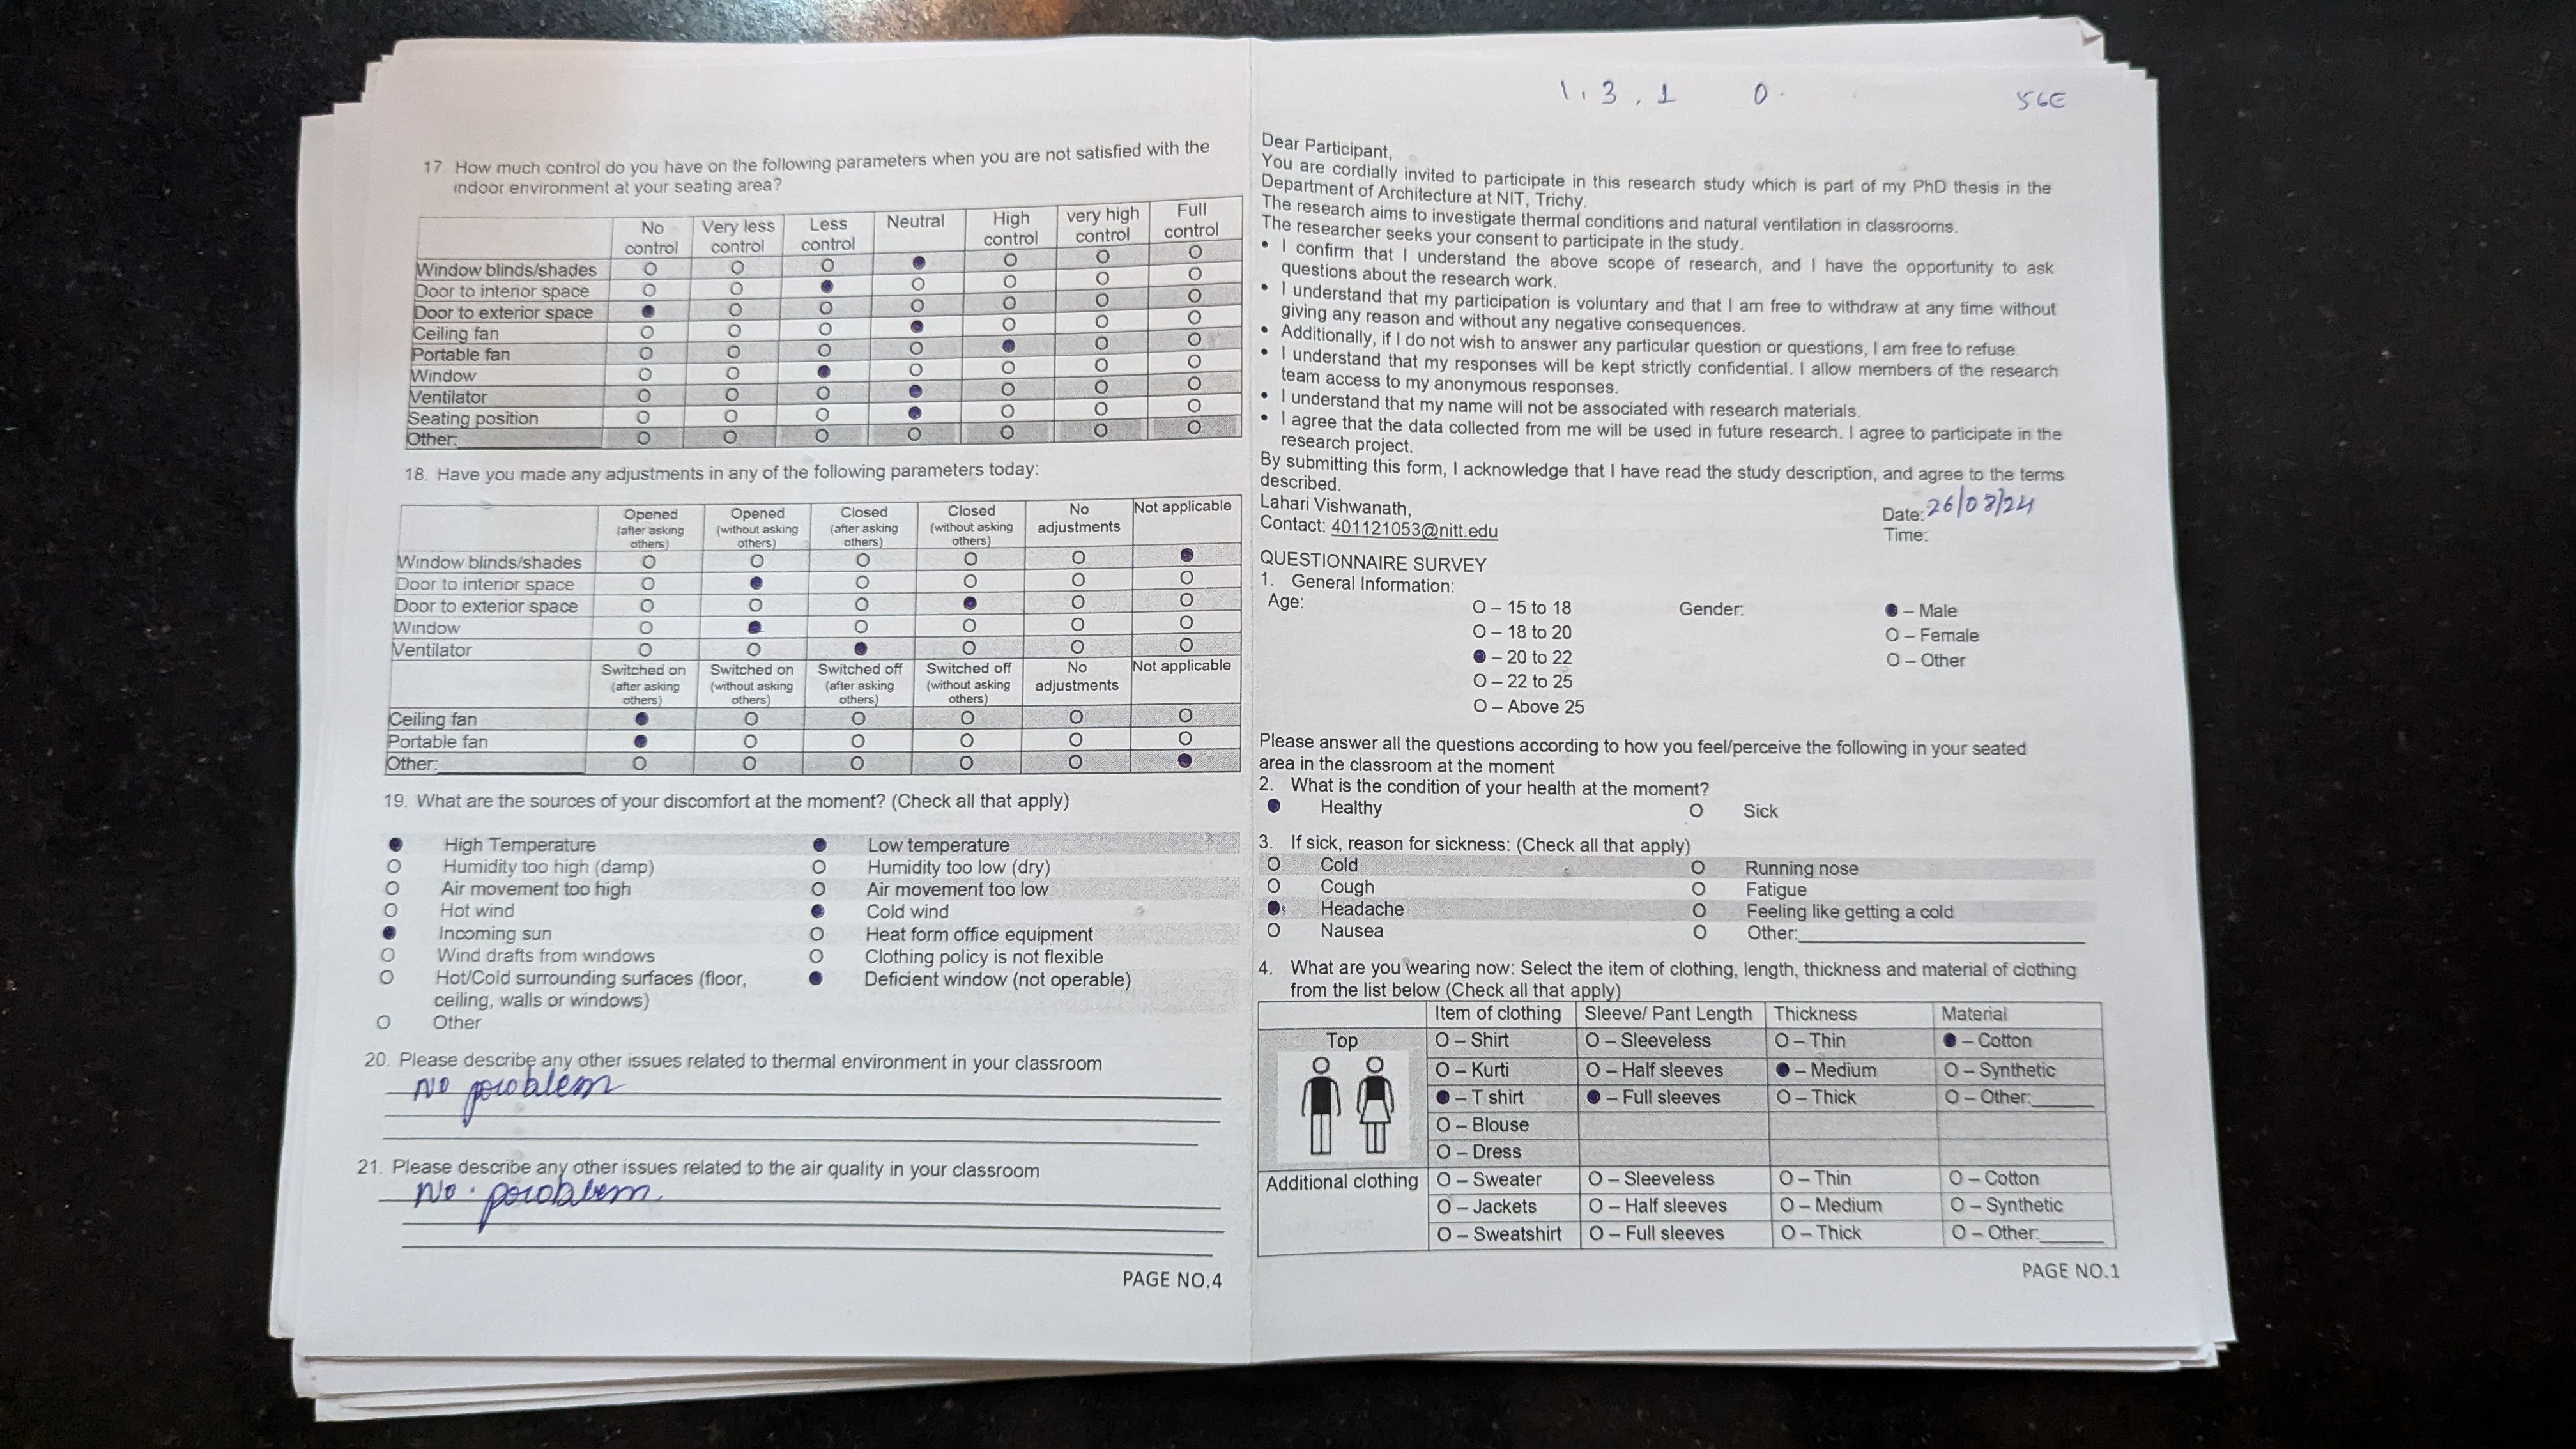 17 How much control do you have on the following parameters when you are not satisfied with the
indoor environment at your seating area?
No control Very less control Less control Neutral High control very high control Full control
Window blinds/shades O O O ● O O O
Door to interior space O O ● O O O O
Door to exterior space ● O O O O O O
Ceiling fan O O O ● O O O
Portable fan O O O O ● O O
Window O O ● O O O O
Ventilator O O O ● O O O
Seating position O O O ● O O O
Other: O O O O O O O
18. Have you made any adjustments in any of the following parameters today:
Opened (after asking others) Opened (without asking others) Closed (after asking others) Closed (without asking others) No adjustments Not applicable
Window blinds/shades O O O O O ●
Door to interior space O ● O O O O
Door to exterior space O O O ● O O
Window O ● O O O O
Ventilator O O ● O O O
Switched on (after asking others) Switched on (without asking others) Switched off (after asking others) Switched off (without asking others) No adjustments Not applicable
Ceiling fan ● O O O O O
Portable fan ● O O O O O
Other: O O O O O ●
19. What are the sources of your discomfort at the moment? (Check all that apply)
● High Temperature ● Low temperature
O Humidity too high (damp) O Humidity too low (dry)
O Air movement too high O Air movement too low
O Hot wind ● Cold wind
● Incoming sun O Heat form office equipment
O Wind drafts from windows O Clothing policy is not flexible
O Hot/Cold surrounding surfaces (floor, ● Deficient window (not operable)
ceiling, walls or windows)
O Other
20. Please describe any other issues related to thermal environment in your classroom
No problem
21. Please describe any other issues related to the air quality in your classroom
No. problem.
PAGE NO.4
1, 3, 1 0. 56E
Dear Participant,
You are cordially invited to participate in this research study which is part of my PhD thesis in the
Department of Architecture at NIT, Trichy.
The research aims to investigate thermal conditions and natural ventilation in classrooms.
The researcher seeks your consent to participate in the study.
• I confirm that I understand the above scope of research, and I have the opportunity to ask
questions about the research work.
• I understand that my participation is voluntary and that I am free to withdraw at any time without
giving any reason and without any negative consequences.
• Additionally, if I do not wish to answer any particular question or questions, I am free to refuse.
• I understand that my responses will be kept strictly confidential. I allow members of the research
team access to my anonymous responses.
• I understand that my name will not be associated with research materials.
• I agree that the data collected from me will be used in future research. I agree to participate in the
research project.
By submitting this form, I acknowledge that I have read the study description, and agree to the terms
described.
Lahari Vishwanath, Date: 26/08/24
Contact: 401121053@nitt.edu Time:
QUESTIONNAIRE SURVEY
1. General Information:
Age: O – 15 to 18 Gender: ● – Male
O – 18 to 20 O – Female
● – 20 to 22 O – Other
O – 22 to 25
O – Above 25
Please answer all the questions according to how you feel/perceive the following in your seated
area in the classroom at the moment
2. What is the condition of your health at the moment?
● Healthy O Sick
3. If sick, reason for sickness: (Check all that apply)
O Cold O Running nose
O Cough O Fatigue
● Headache O Feeling like getting a cold
O Nausea O Other:
4. What are you wearing now: Select the item of clothing, length, thickness and material of clothing
from the list below (Check all that apply)
Item of clothing Sleeve/ Pant Length Thickness Material
Top O – Shirt O – Sleeveless O – Thin ● – Cotton
O – Kurti O – Half sleeves ● – Medium O – Synthetic
● – T shirt ● – Full sleeves O – Thick O – Other:
O – Blouse
O – Dress
Additional clothing O – Sweater O – Sleeveless O – Thin O – Cotton
O – Jackets O – Half sleeves O – Medium O – Synthetic
O – Sweatshirt O – Full sleeves O – Thick O – Other:
PAGE NO.1